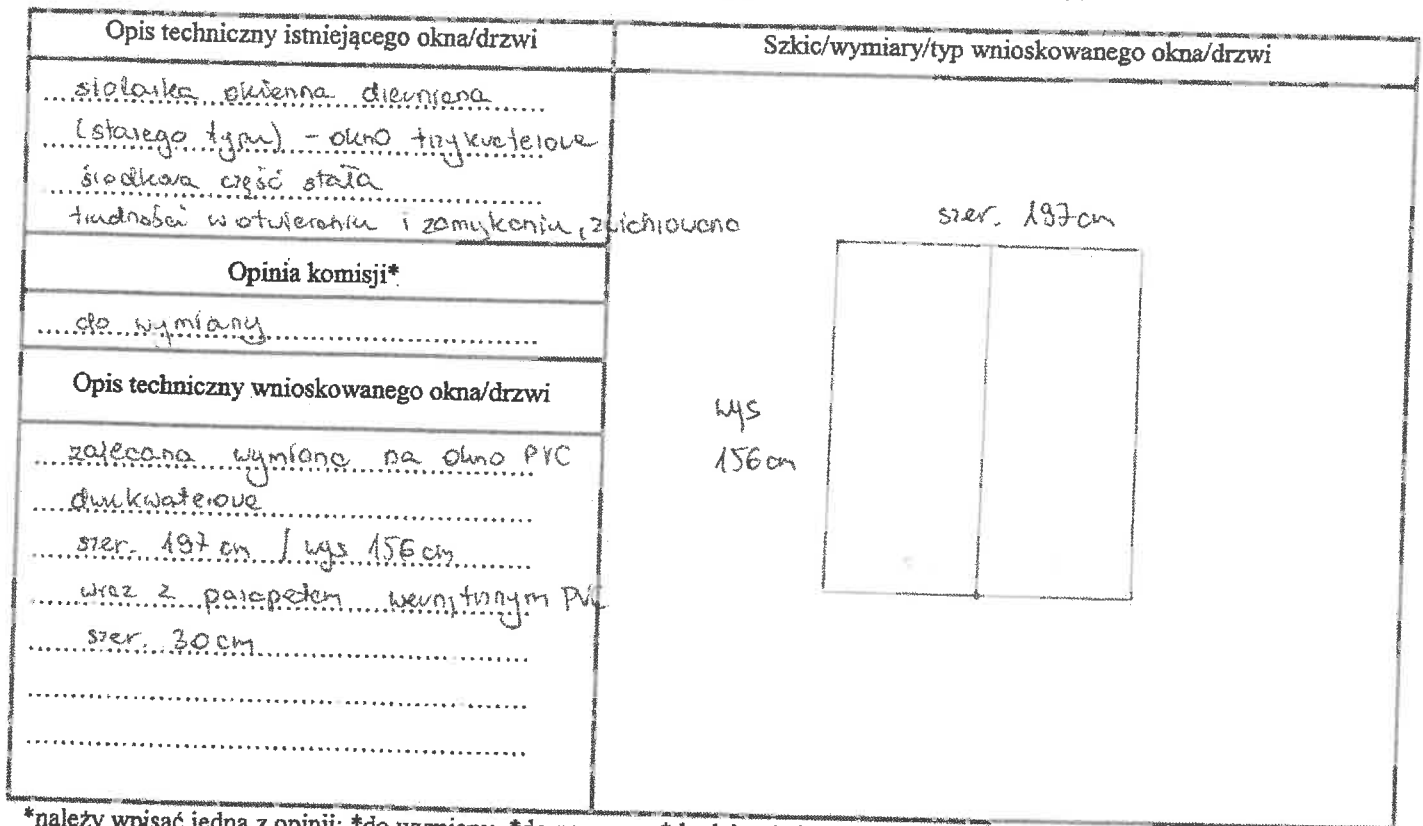 Opis techniczny istniejącego okna/drzwi
stolarka okienna drewniana
(starego typu) - okno trzykwaterowe
środkowa część stała
trudności w otwieraniu i zamykaniu, zwichrowane
Opinia komisji*
do wymiany
Opis techniczny wnioskowanego okna/drzwi
zalecana wymiana na okno PVC
dwukwaterowe
szer. 197 cm / wys 156 cm
wraz z parapetem wewnętrznym PVC
szer. 30 cm
Szkic/wymiary/typ wnioskowanego okna/drzwi
szer. 197 cm
wys
156 cm
*należy wpisać jedną z opinii: *do wymiany